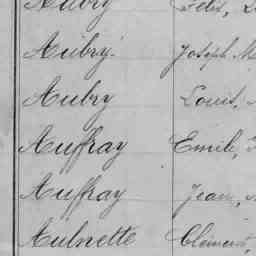 Aubry
Aubry Joseph M
Aubry Louis,
Auffray Emile,
Auffray Jean,
Aulnette Clément,